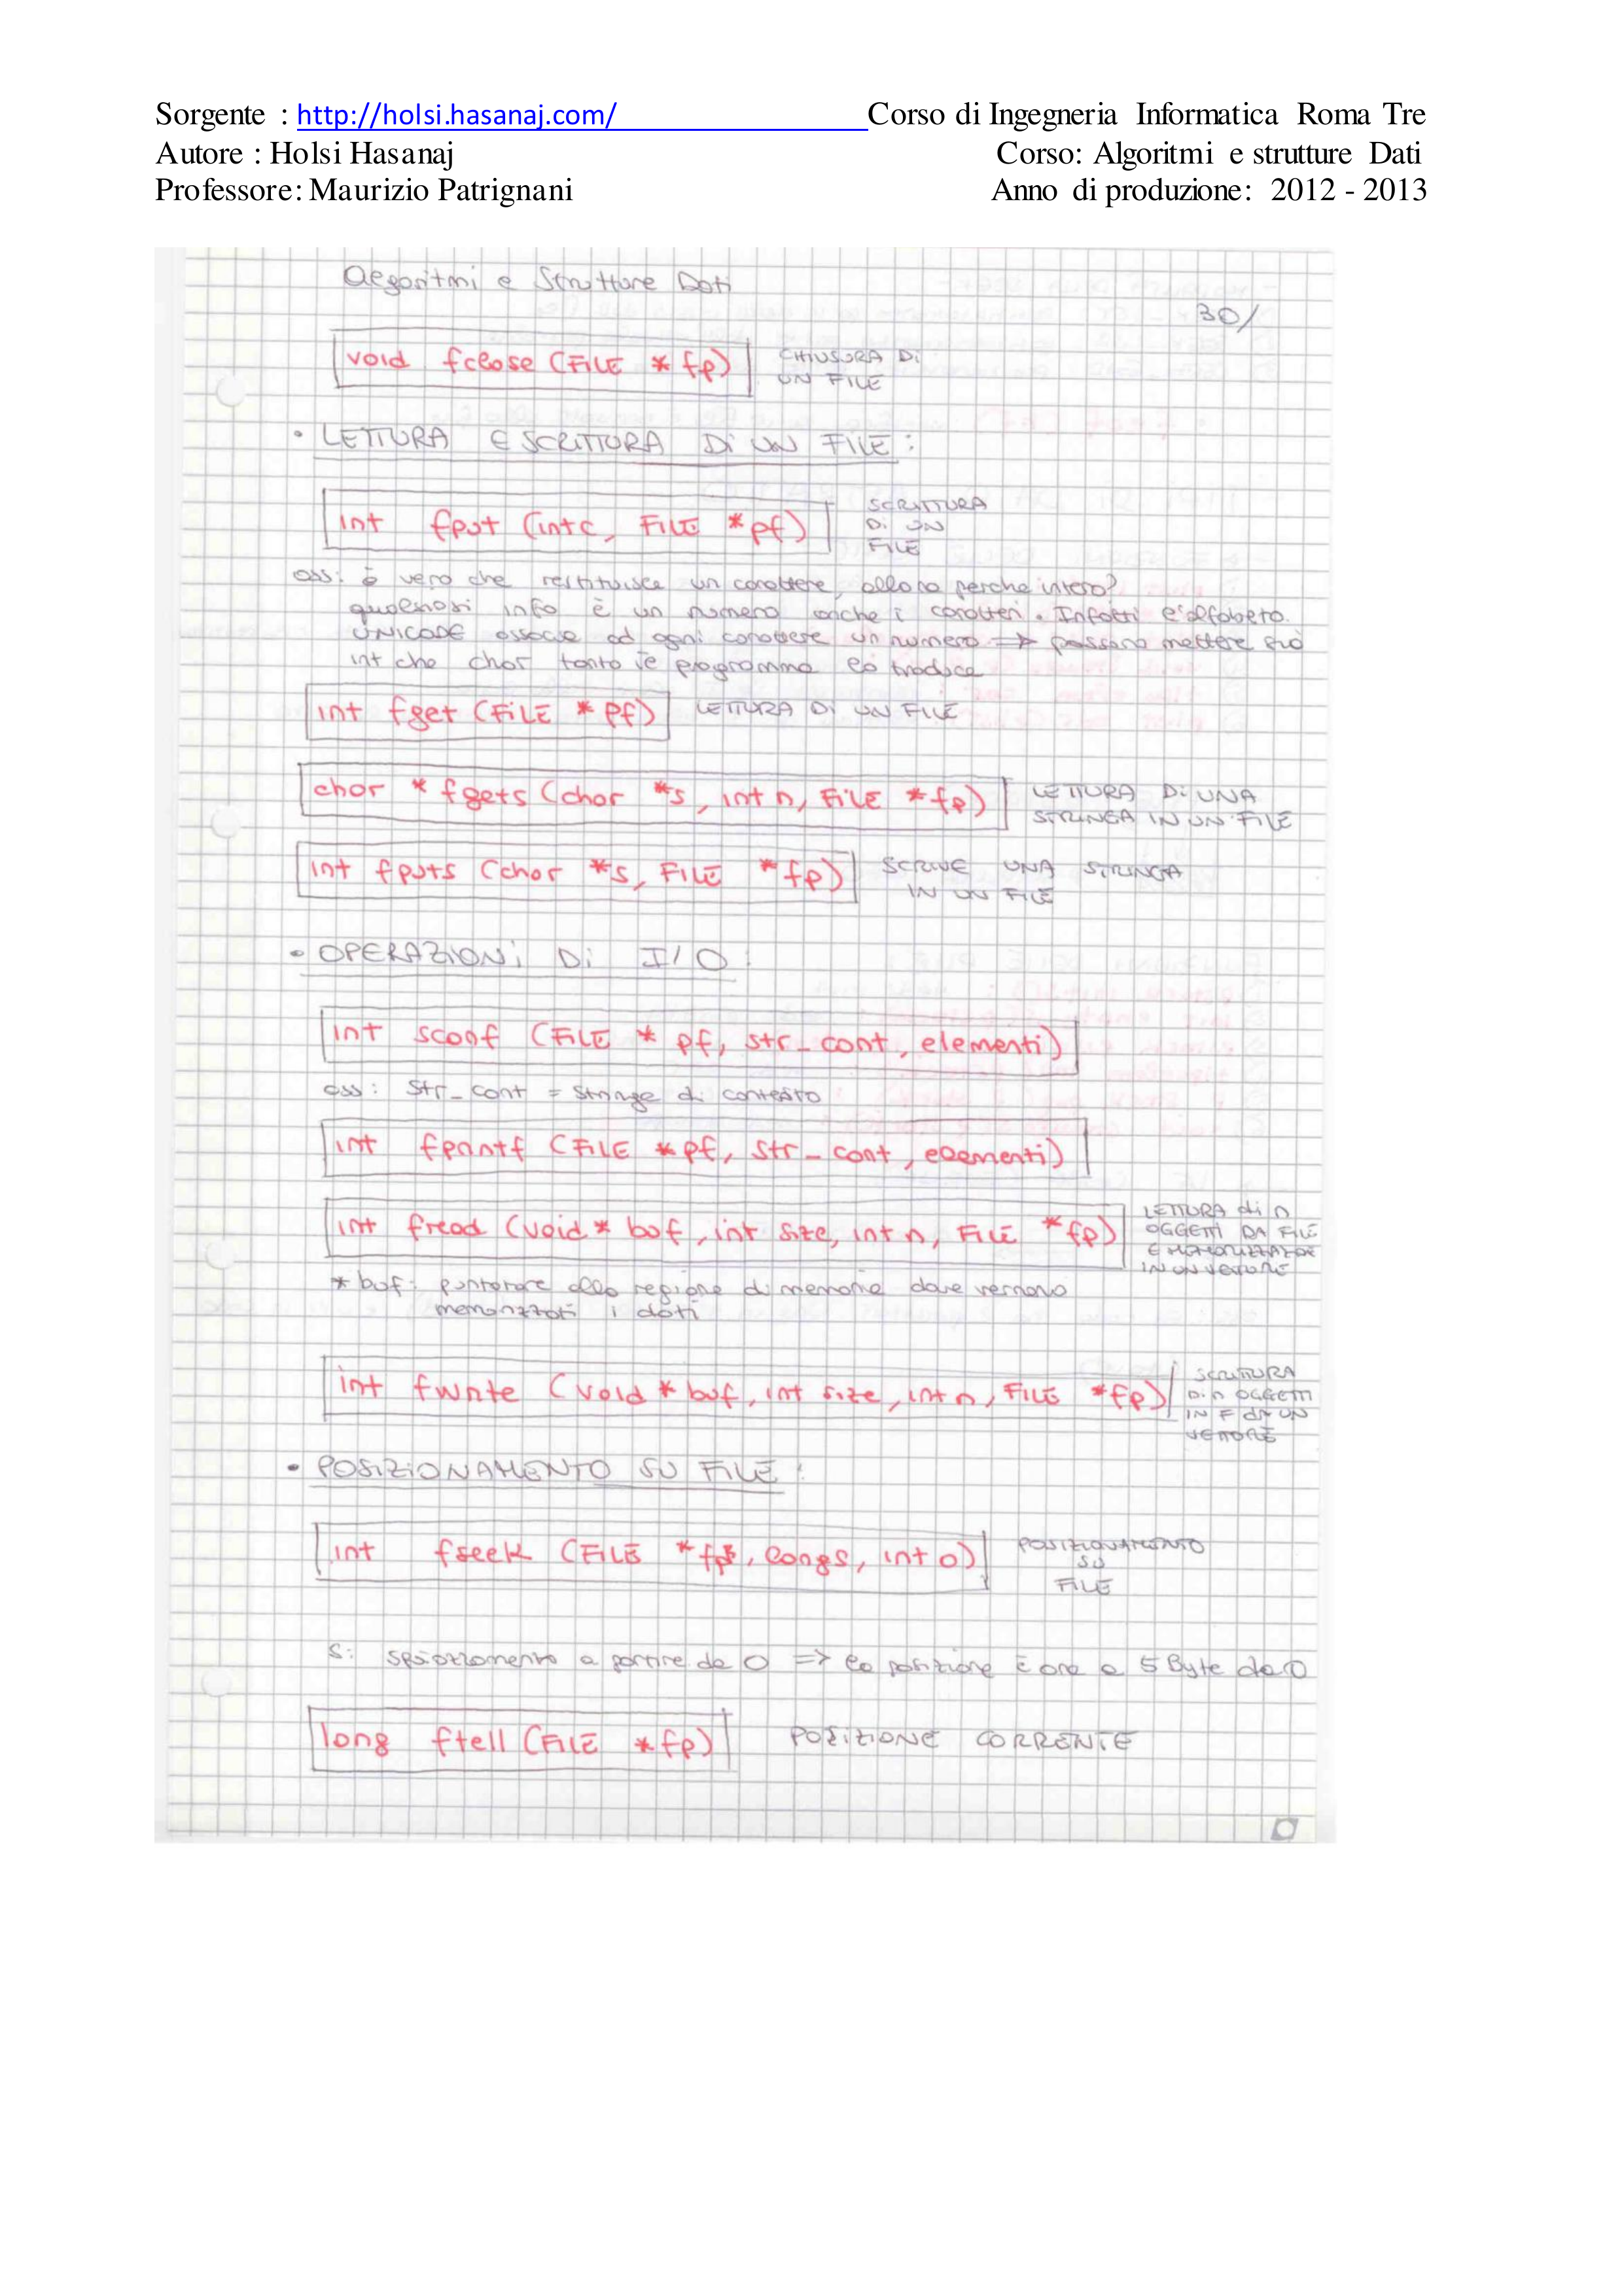 Sorgente : http://holsi.hasanaj.com/ Corso di Ingegneria Informatica Roma Tre
Autore : Holsi Hasanaj Corso: Algoritmi e strutture Dati
Professore: Maurizio Patrignani Anno di produzione: 2012 - 2013
Algoritmi e Strutture Dati
30/
void fclose (FILE * fp) CHIUSURA Di
UN FILE
• LETTURA E SCRITTURA Di UN FILE :
int fput (int c, FILE * pf) SCRITTURA
Di UN
FILE
oss: è vero che restituisce un carattere, allora perche intero?
qualsiasi info è un numero anche i caratteri. Infatti l'alfabeto
UNICODE associa ad ogni carattere un numero => possono mettere sia
int che char tanto il programma lo traduce
int fget (FILE * pf) LETTURA Di UN FILE
char * fgets (char *s, int n, FILE * fp) LETTURA Di UNA
STRINGA IN UN FILE
int fputs (char *s, FILE * fp) SCRIVE UNA STRINGA
IN UN FILE
• OPERAZIONi Di I/O :
int scanf (FILE * pf, str_cont, elementi)
oss: str_cont = stringa di contesto
int fprintf (FILE * pf, str_cont, elementi)
int fread (void * buf, int size, int n, FILE * fp) LETTURA di n
OGGETTI DA FILE
E MEMORIZZAZIONE
IN UN VETTORE
* buf: puntatore alla regione di memoria dove verranno
memorizzati i dati
int fwrite (void * buf, int size, int n, FILE * fp) SCRITTURA
Di n OGGETTI
IN F di UN
VETTORE
• POSIZIONAMENTO SU FILE :
int fseek (FILE * fp, long s, int o) POSIZIONAMENTO
SU
FILE
s: spiazzamento a partire da O => la posizione è ora a 5 Byte da O
long ftell (FILE * fp) POSIZIONE CORRENTE